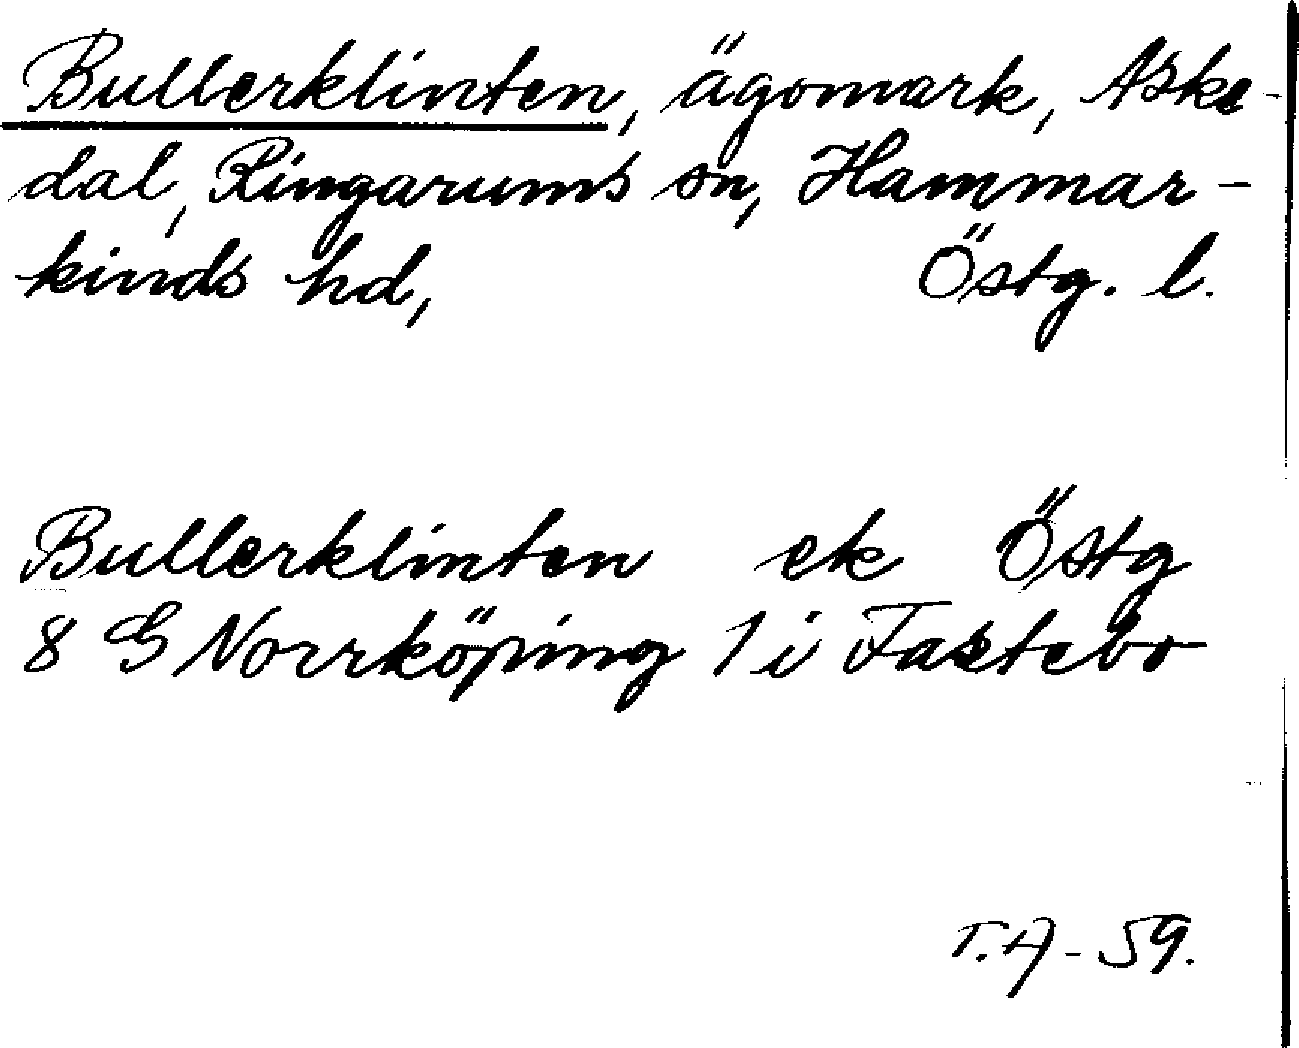 Bullerklinten, ägomark, Aske-
dal, Ringarums sn, Hammar-
kinds hd, Östg. l.
Bullerklinten ek Östg
8 G Norrköping 1 i Fastebo
T.A - 59.